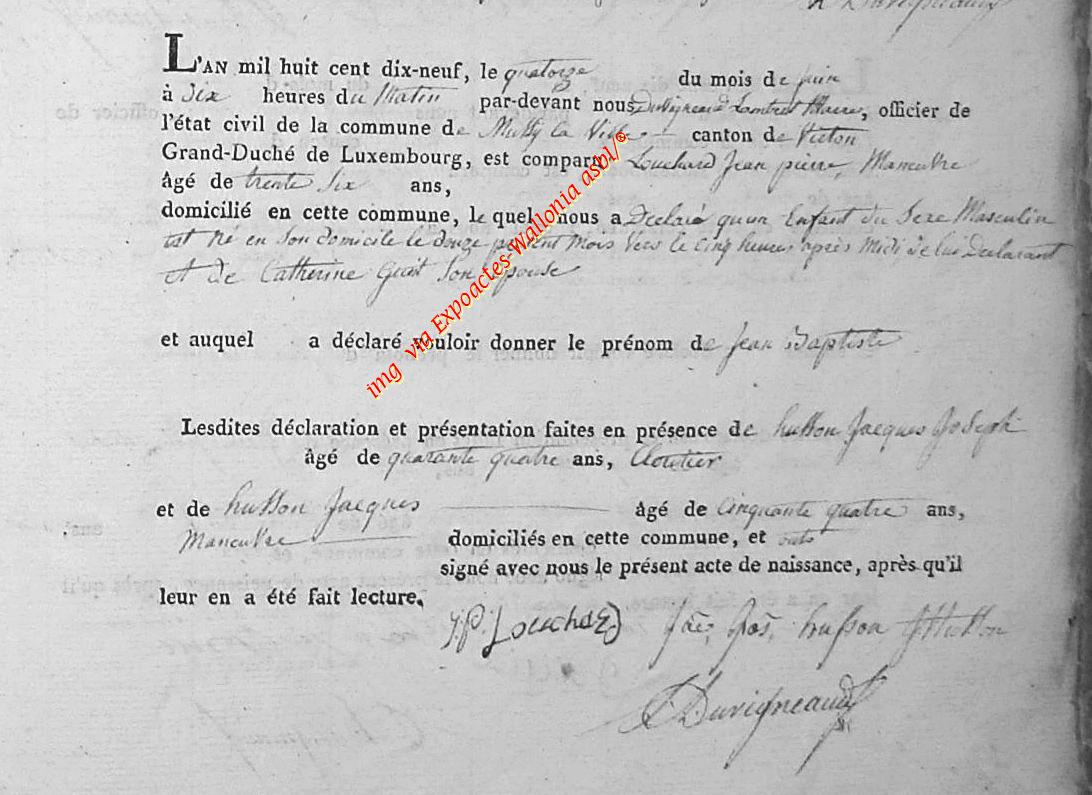 L'AN mil huit cent dix-neuf, le quatorze du mois de juin
à Six heures du Matin par-devant nous Duvigneaud Maire, officier de
l'état civil de la commune de Mussy la Ville canton de Virton
Grand-Duché de Luxembourg, est comparu Louchard Jean pierre, Maneuvre
âgé de trente Six ans,
domicilié en cette commune, lequel nous a Declaré qu'un Enfant du Sexe Masculin
est Né en Son domicile le douze présent Mois vers le Cinq heures après Midi de lui Declarant
et de Catherine Son Epouse
et auquel a déclaré vouloir donner le prénom de Jean Baptiste
Lesdites déclaration et présentation faites en présence de husson Jacques Joseph
âgé de quarante quatre ans, Cloutier
et de husson Jacques âgé de Cinquante quatre ans,
Maneuvre domiciliés en cette commune, et onts
signé avec nous le présent acte de naissance, après qu'il
leur en a été fait lecture.
J.P. Louchard Jac, Jos, husson JHusson
Duvigneaud
img via Expoactes-Wallonia asbl/®